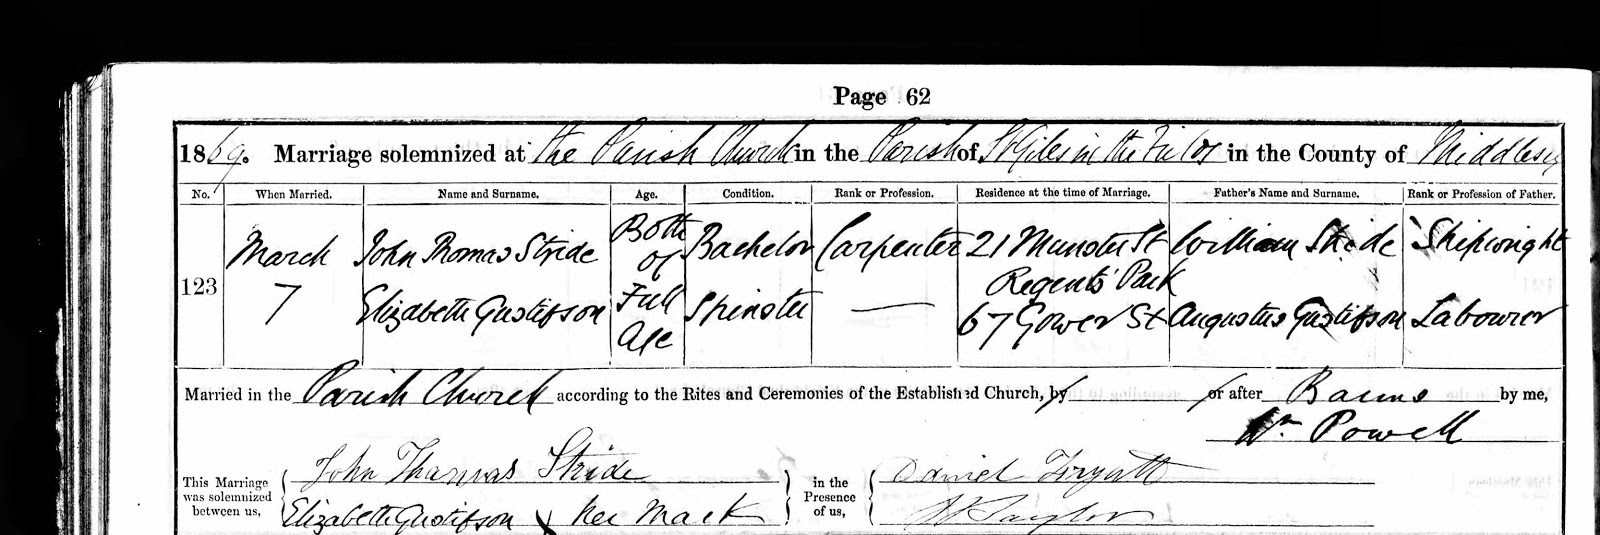 Page 62
1869. Marriage solemnized at the Parish Church in the Parish of St Giles in the Fields in the County of Middlesex
No. When Married. Name and Surname. Age. Condition. Rank or Profession. Residence at the time of Marriage. Father's Name and Surname. Rank or Profession of Father.
123 March 7
John Thomas Stride Bachelor Carpenter 21 Munster St Regents Park William Stride Shipwright
Both of Full Age
Elizabeth Gustifson Spinster — 67 Gower St Augustus Gustifson Labourer
Married in the Parish Church according to the Rites and Ceremonies of the Established Church, by or after Banns by me,
Wm Powell
This Marriage was solemnized between us, John Thomas Stride in the Presence of us, Daniel
Elizabeth Gustifson X her Mark N Taylor